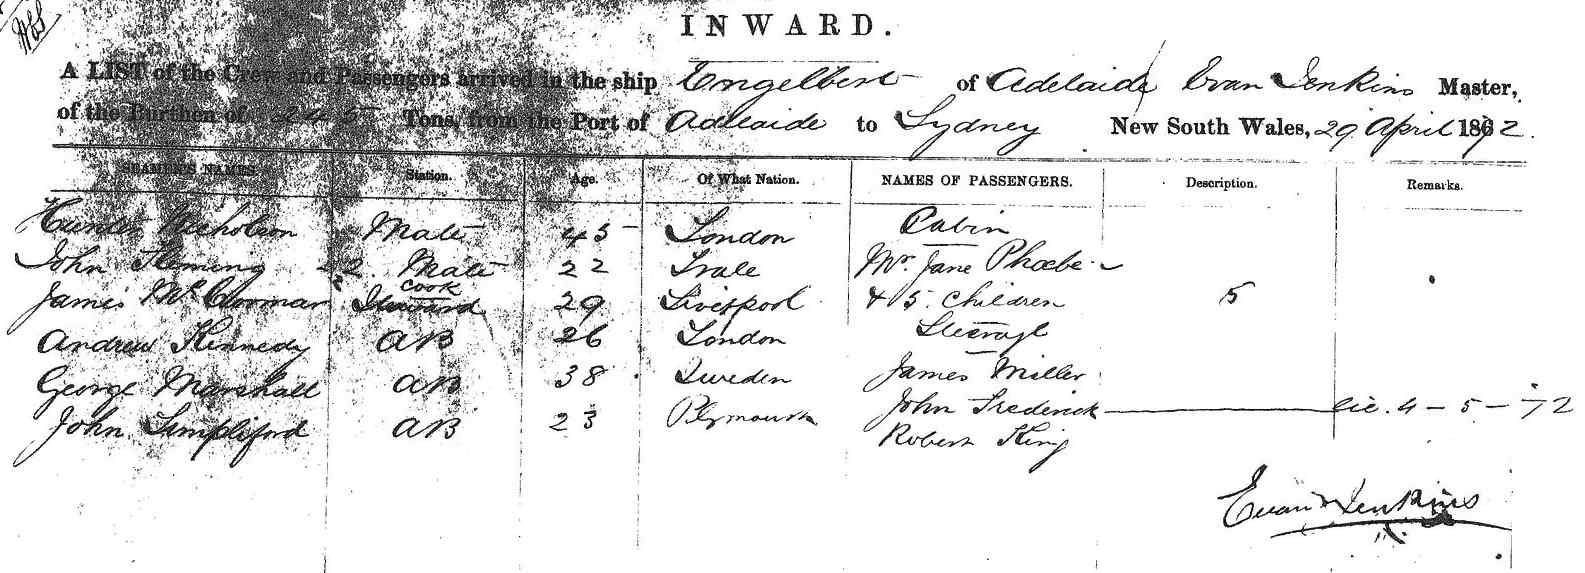 INWARD.
A LIST of the Crew and Passengers arrived in the ship Engelbert of Adelaide Evan Jenkins Master,
of the Burthen of 245 Tons, from the Port of Adelaide to Sydney New South Wales, 29 April 1872.
SEAMEN'S NAMES Station. Age. Of What Nation. NAMES OF PASSENGERS. Description. Remarks.
Hunter Nicholson Mate 45 London Cabin
John Fleming 2 Mate 22 Mr. Jane Phoebe
James Cook Steward 29 Liverpool & 5 Children 5
Andrew Kennedy AB 26 London Steerage
George Marshall AB 38 Sweden James Miller
John AB 23 Plymouth John Frederick 4-5-72
Robert King
Evan Jenkins